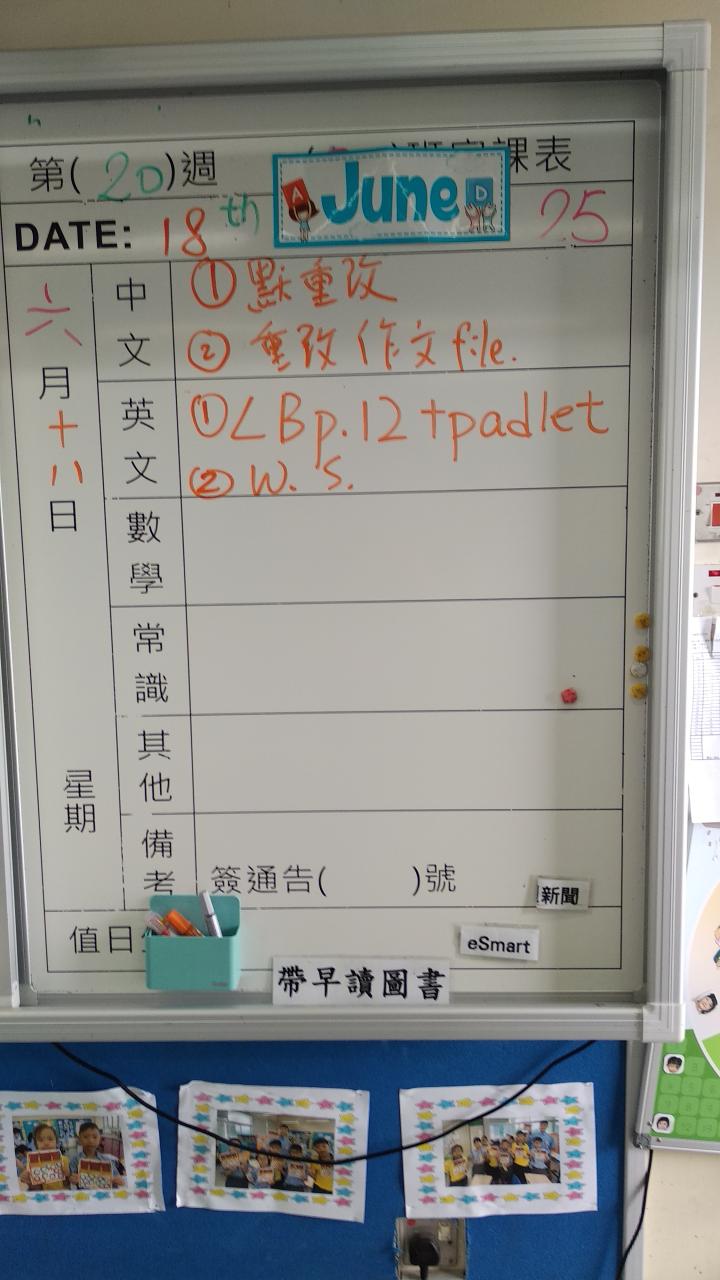 第(20)週
課表
DATE: 18th June 25
六月十八日
星期
中文
①默重改
②重改作文file.
英文
①LBp.12+padlet
②W.S.
數學
常識
其他
備考
簽通告( )號
新聞
值日
eSmart
帶早讀圖書